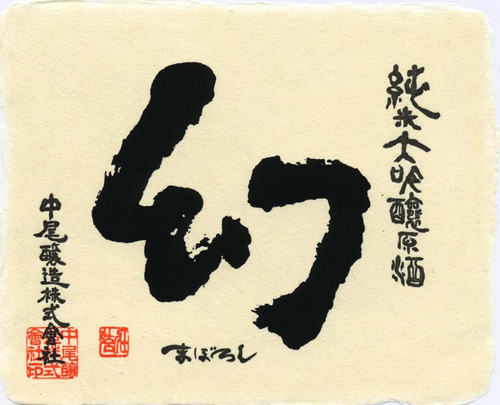 純米大吟醸原酒
幻
まぼろし
中尾醸造株式會社
中尾醸造株式會社印